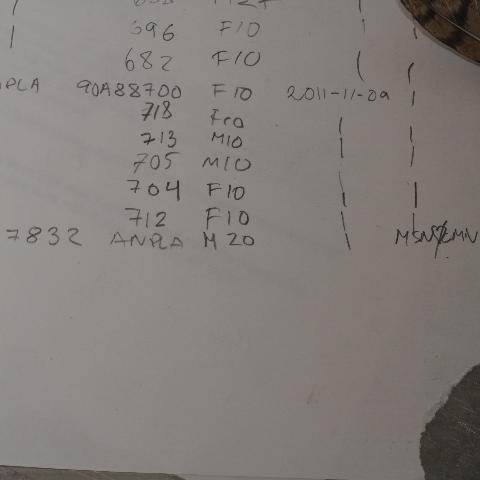 696 F10
682 F10
90A88700 F10 2011-11-09
718 F10
713 M10
705 M10
704 F10
712 F10
7832 ANPLA M 20